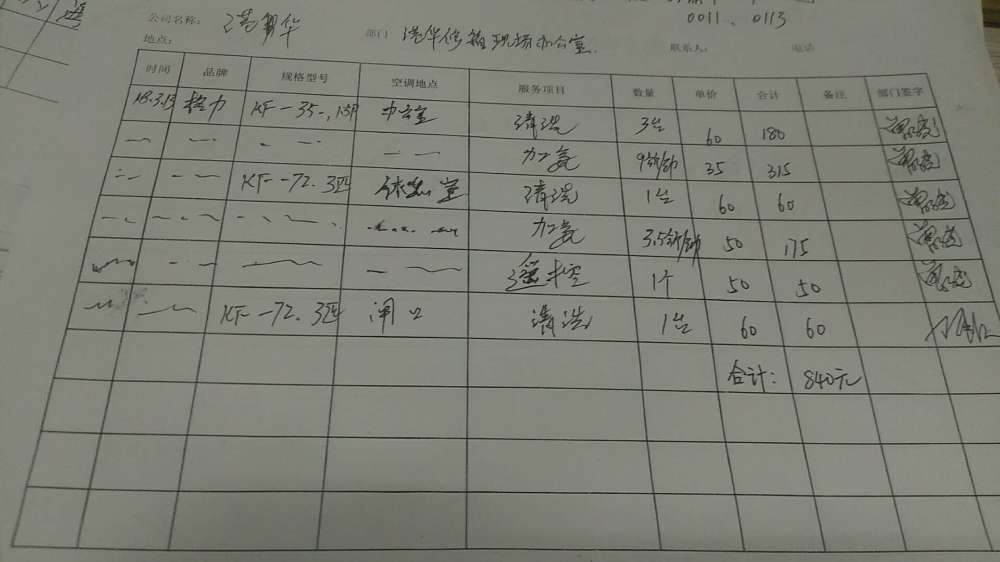 0011. 0113
公司名称: 港翔华 部门 港华修箱现场办公室.
地点: 联系人: 电话
时间 品牌 规格型号 空调地点 服务项目 数量 单价 合计 备注 部门签字
18.3.13 格力 KF--35-,1.5P 办公室 清洗 3台 60 180
加氟 35 315
KF--72.3匹 休息室 清洗 1台 60 60
加氟 50 175
遥控 1个 50 50
KF--72.3匹 闸口 清洗 1台 60 60
合计: 840元